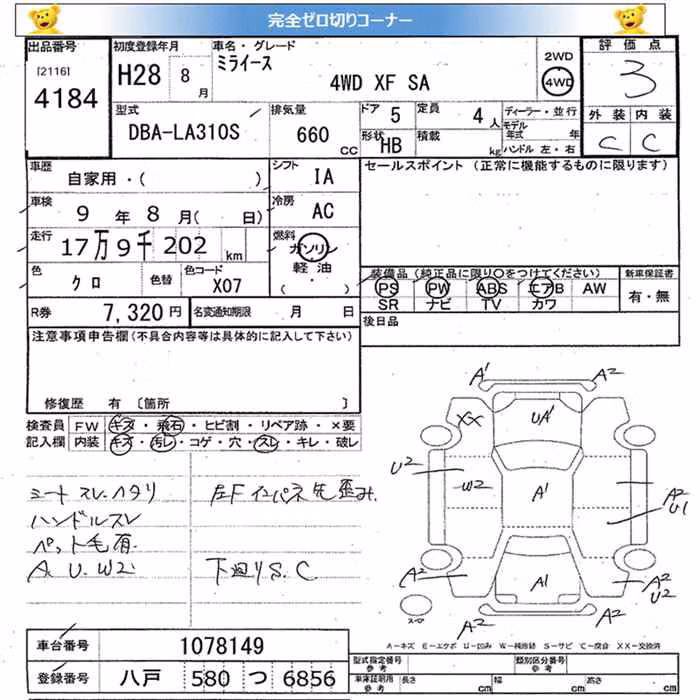 完全ゼロ切りコーナー
出品番号
[2116]
4184
初度登録年月
H28 8 月
車名・グレード
ミライース
4WD XF SA
2WD
4WD
評価点
3
外装 内装
C C
型式
DBA-LA310S
排気量
660 CC
ドア 5
形状 HB
定員 4 人
積載 kg
ディーラー・並行
モデル年式 年
ハンドル 左・右
車歴
自家用・( )
シフト
IA
セールスポイント (正常に機能するものに限ります)
車検
9 年 8 月( 日)
冷房
AC
走行
17万9千202 km
燃料
ガソリン
軽油
( ・ )
色
クロ
色替
色コード
X07
装備品(純正品に限り〇をつけてください)
PS PW ABS エアB AW
SR ナビ TV カワ
新車保証書
有・無
R券 7,320 円
名変通知期限 月 日
後日品
注意事項申告欄(不具合内容等は具体的に記入して下さい)
修復歴 有 〔箇所 〕
検査員記入欄
FW キズ・飛石・ヒビ割・リペア跡・×要
内装 キズ・汚レ・コゲ・穴・スレ・キレ・破レ
シート スレ ヘタリ
ハンドルスレ
ペット毛有
A. U. W2
左Fインパネ先歪み
下廻りS.C
A1 A2
XX UA1
U2 W2 A1 A2 U1
A2 A1 A2 U2
A2 A2
スペア
A=キズ E=エクボ U=凹み W=補修跡 S=サビ C=腐食 XX=交換済
車台番号 1078149
登録番号 八戸 580 つ 6856
型式指定番号 参考
類別区分番号 参考
車庫証明用 参考
長さ cm 幅 cm 高さ cm